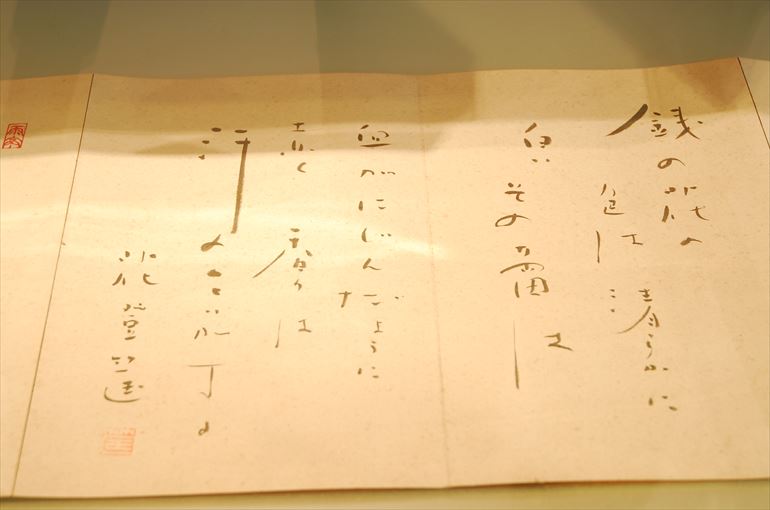 銭の花の
色は清らかに
白い
その蕾は
血がにじんだように
赤く
香りは
汗の
する
花登筐